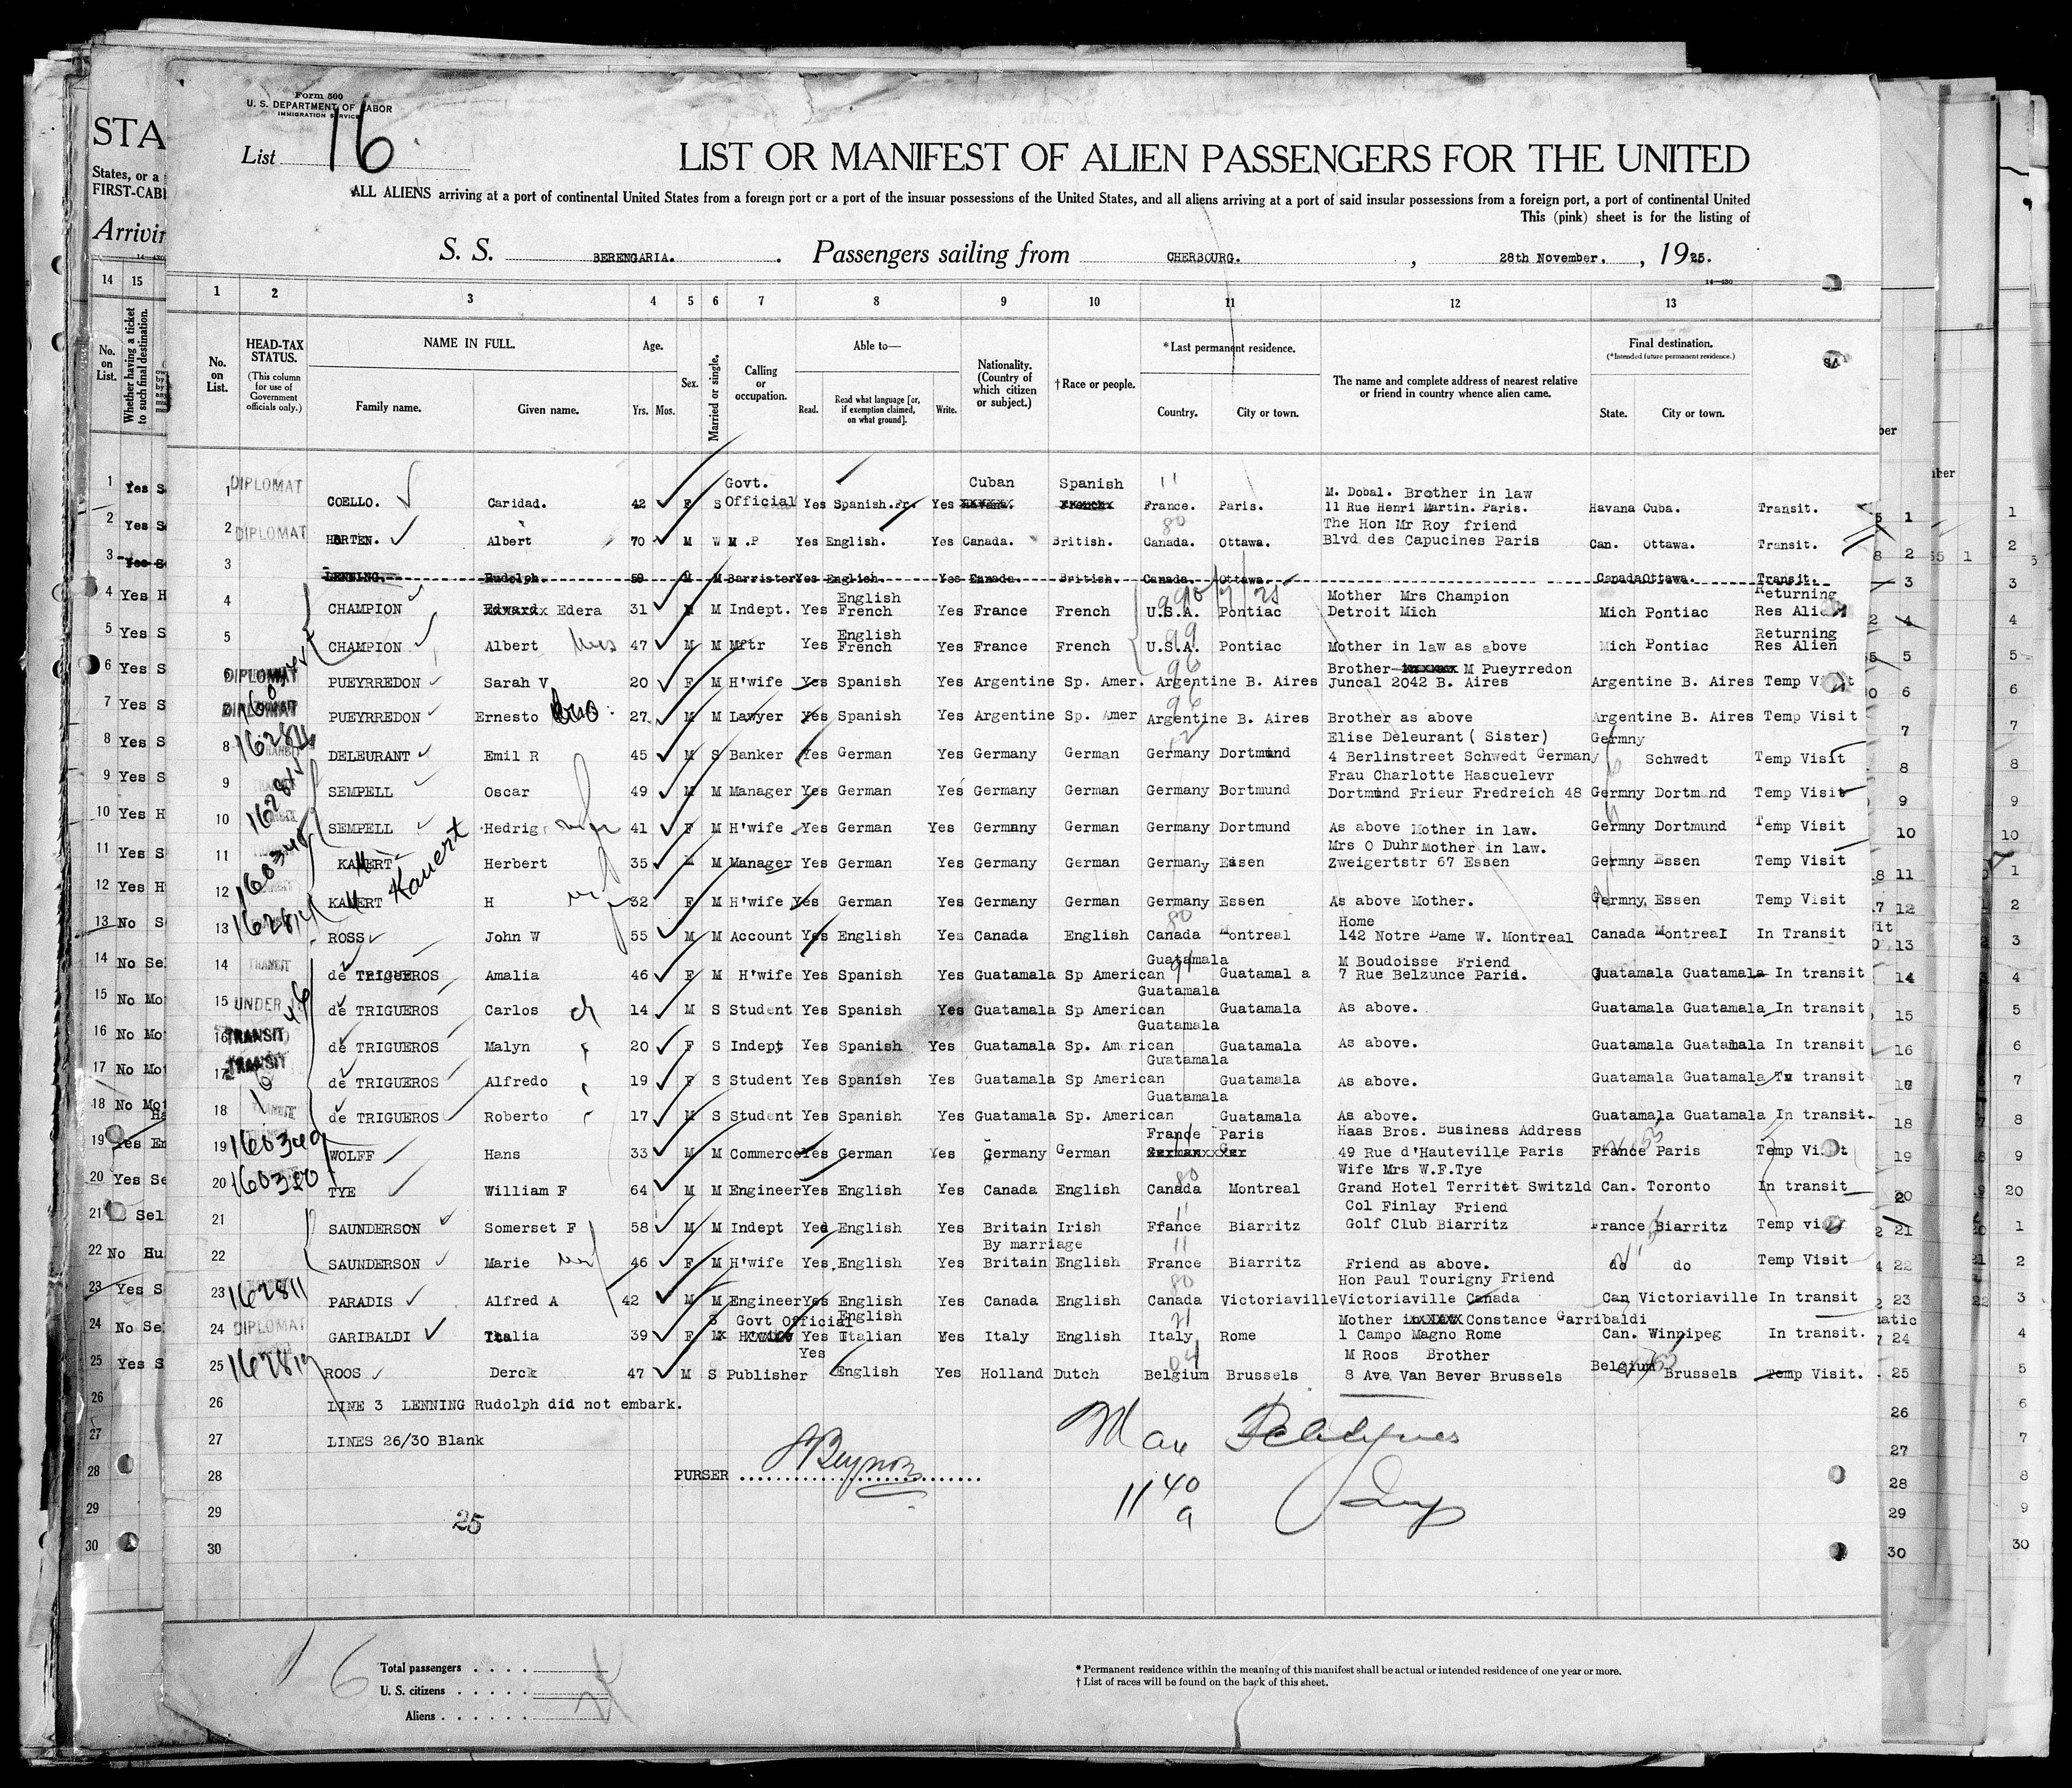 Form 500
U. S. DEPARTMENT OF LABOR
IMMIGRATION SERVICE
List 16
LIST OR MANIFEST OF ALIEN PASSENGERS FOR THE UNITED
ALL ALIENS arriving at a port of continental United States from a foreign port or a port of the insular possessions of the United States, and all aliens arriving at a port of said insular possessions from a foreign port, a port of continental United
This (pink) sheet is for the listing of
S. S. BERENGARIA. Passengers sailing from CHERBOURG. , 28th November. , 1925.
14—430
1 2 3 4 5 6 7 8 9 10 11 12 13
No. on List. HEAD-TAX STATUS. (This column for use of Government officials only.) NAME IN FULL. Family name. Given name. Age. Yrs. Mos. Sex. Married or single. Calling or occupation. Able to— Read. Read what language [or, if exemption claimed, on what ground]. Write. Nationality. (Country of which citizen or subject.) †Race or people. *Last permanent residence. Country. City or town. The name and complete address of nearest relative or friend in country whence alien came. Final destination. (*Intended future permanent residence.) State. City or town.
1 DIPLOMAT COELLO. Caridad. 42 F S Govt. Official Yes Spanish.Fr. Yes Cuban Spanish France. Paris. M. Dobal. Brother in law 11 Rue Henri Martin. Paris. Havana Cuba. Transit.
2 DIPLOMAT HORTEN. Albert 70 M W M .P Yes English. Yes Canada. British. Canada. Ottawa. The Hon Mr Roy friend Blvd des Capucines Paris Can. Ottawa. Transit.
3 LENNING. Rudolph. 59 M M Barrister Yes English. Yes Canada. British. Canada. Ottawa. Canada Ottawa. Transit.
4 CHAMPION Edward Edera 31 M Indept. Yes English French Yes France French U.S.A. Pontiac Mother Mrs Champion Detroit Mich Mich Pontiac Returning Res Alien
5 CHAMPION Albert 47 M M Mftr Yes English French Yes France French U.S.A. Pontiac Mother in law as above Mich Pontiac Returning Res Alien
6 DIPLOMAT PUEYRREDON Sarah V 20 F M H'wife Yes Spanish Yes Argentine Sp. Amer. Argentine B. Aires Brother M Pueyrredon Juncal 2042 B. Aires Argentine B. Aires Temp Visit
7 DIPLOMAT PUEYRREDON Ernesto 27 M M Lawyer Yes Spanish Yes Argentine Sp. Amer Argentine B. Aires Brother as above Argentine B. Aires Temp Visit
8 TRANSIT DELEURANT Emil R 45 M S Banker Yes German Yes Germany German Germany Dortmund Elise Deleurant ( Sister) 4 Berlinstreet Schwedt Germany Germny Schwedt Temp Visit
9 SEMPELL Oscar 49 M M Manager Yes German Yes Germany German Germany Dortmund Frau Charlotte Hascuelevr Dortmund Frieur Fredreich 48 Germny Dortmund Temp Visit
10 SEMPELL Hedrig 41 F M H'wife Yes German Yes Germany German Germany Dortmund As above Mother in law. Germny Dortmund Temp Visit
11 KAUERT Kauert Herbert 35 M M Manager Yes German Yes Germany German Germany Essen Mrs O Duhr Mother in law. Zweigertstr 67 Essen Germny Essen Temp Visit
12 KAUERT H 32 F M H'wife Yes German Yes Germany German Germany Essen As above Mother. Germny. Essen Temp Visit
13 162814 ROSS John W 55 M M Account Yes English Yes Canada English Canada Montreal Home 142 Notre Dame W. Montreal Canada Montreal In Transit
14 TRANSIT de TRIGUEROS Amalia 46 F M H'wife Yes Spanish Yes Guatamala Sp American Guatamala Guatamal a M Boudoisse Friend 7 Rue Belzunce Paris. Guatamala Guatamala In transit
15 UNDER 16 de TRIGUEROS Carlos 14 M S Student Yes Spanish Yes Guatamala Sp American Guatamala Guatamala As above. Guatamala Guatamala In transit
16 TRANSIT de TRIGUEROS Malyn 20 F S Indept Yes Spanish Yes Guatamala Sp. American Guatamala Guatamala As above. Guatamala Guatamala In transit
17 TRANSIT de TRIGUEROS Alfredo 19 F S Student Yes Spanish Yes Guatamala Sp American Guatamala Guatamala As above. Guatamala Guatamala In transit
18 TRANSIT de TRIGUEROS Roberto 17 M S Student Yes Spanish Yes Guatamala Sp. American Guatamala Guatamala As above. Guatamala Guatamala In transit.
19 160349 WOLFF Hans 33 M M Commerce Yes German Yes Germany German France Paris Haas Bros. Business Address 49 Rue d'Hauteville Paris France Paris Temp Visit
20 160350 TYE William F 64 M M Engineer Yes English Yes Canada English Canada Montreal Wife Mrs W.F.Tye Grand Hotel Territet Switzld Can. Toronto In transit
21 SAUNDERSON Somerset F 58 M M Indept Yes English Yes Britain Irish France Biarritz Col Finlay Friend Golf Club Biarritz France Biarritz Temp visit
22 SAUNDERSON Marie 46 F M H'wife Yes English Yes By marriage Britain English France Biarritz Friend as above. do do Temp Visit
23 162811 PARADIS Alfred A 42 M M Engineer Yes English Yes Canada English Canada Victoriaville Hon Paul Tourigny Friend Victoriaville Canada Can Victoriaville In transit
24 DIPLOMAT GARIBALDI Italia 39 F S Govt Official Yes English Italian Yes Italy English Italy Rome Mother Constance Garribaldi 1 Campo Magno Rome Can. Winnipeg In transit.
25 162819 ROOS Derck 47 M S Publisher Yes English Yes Holland Dutch Belgium Brussels M Roos Brother 8 Ave Van Bever Brussels Belgium Brussels Temp Visit.
26 LINE 3 LENNING Rudolph did not embark.
27 LINES 26/30 Blank
28 PURSER
29 25
30
11 40
a
16
Total passengers
U. S. citizens
Aliens
* Permanent residence within the meaning of this manifest shall be actual or intended residence of one year or more.
† List of races will be found on the back of this sheet.